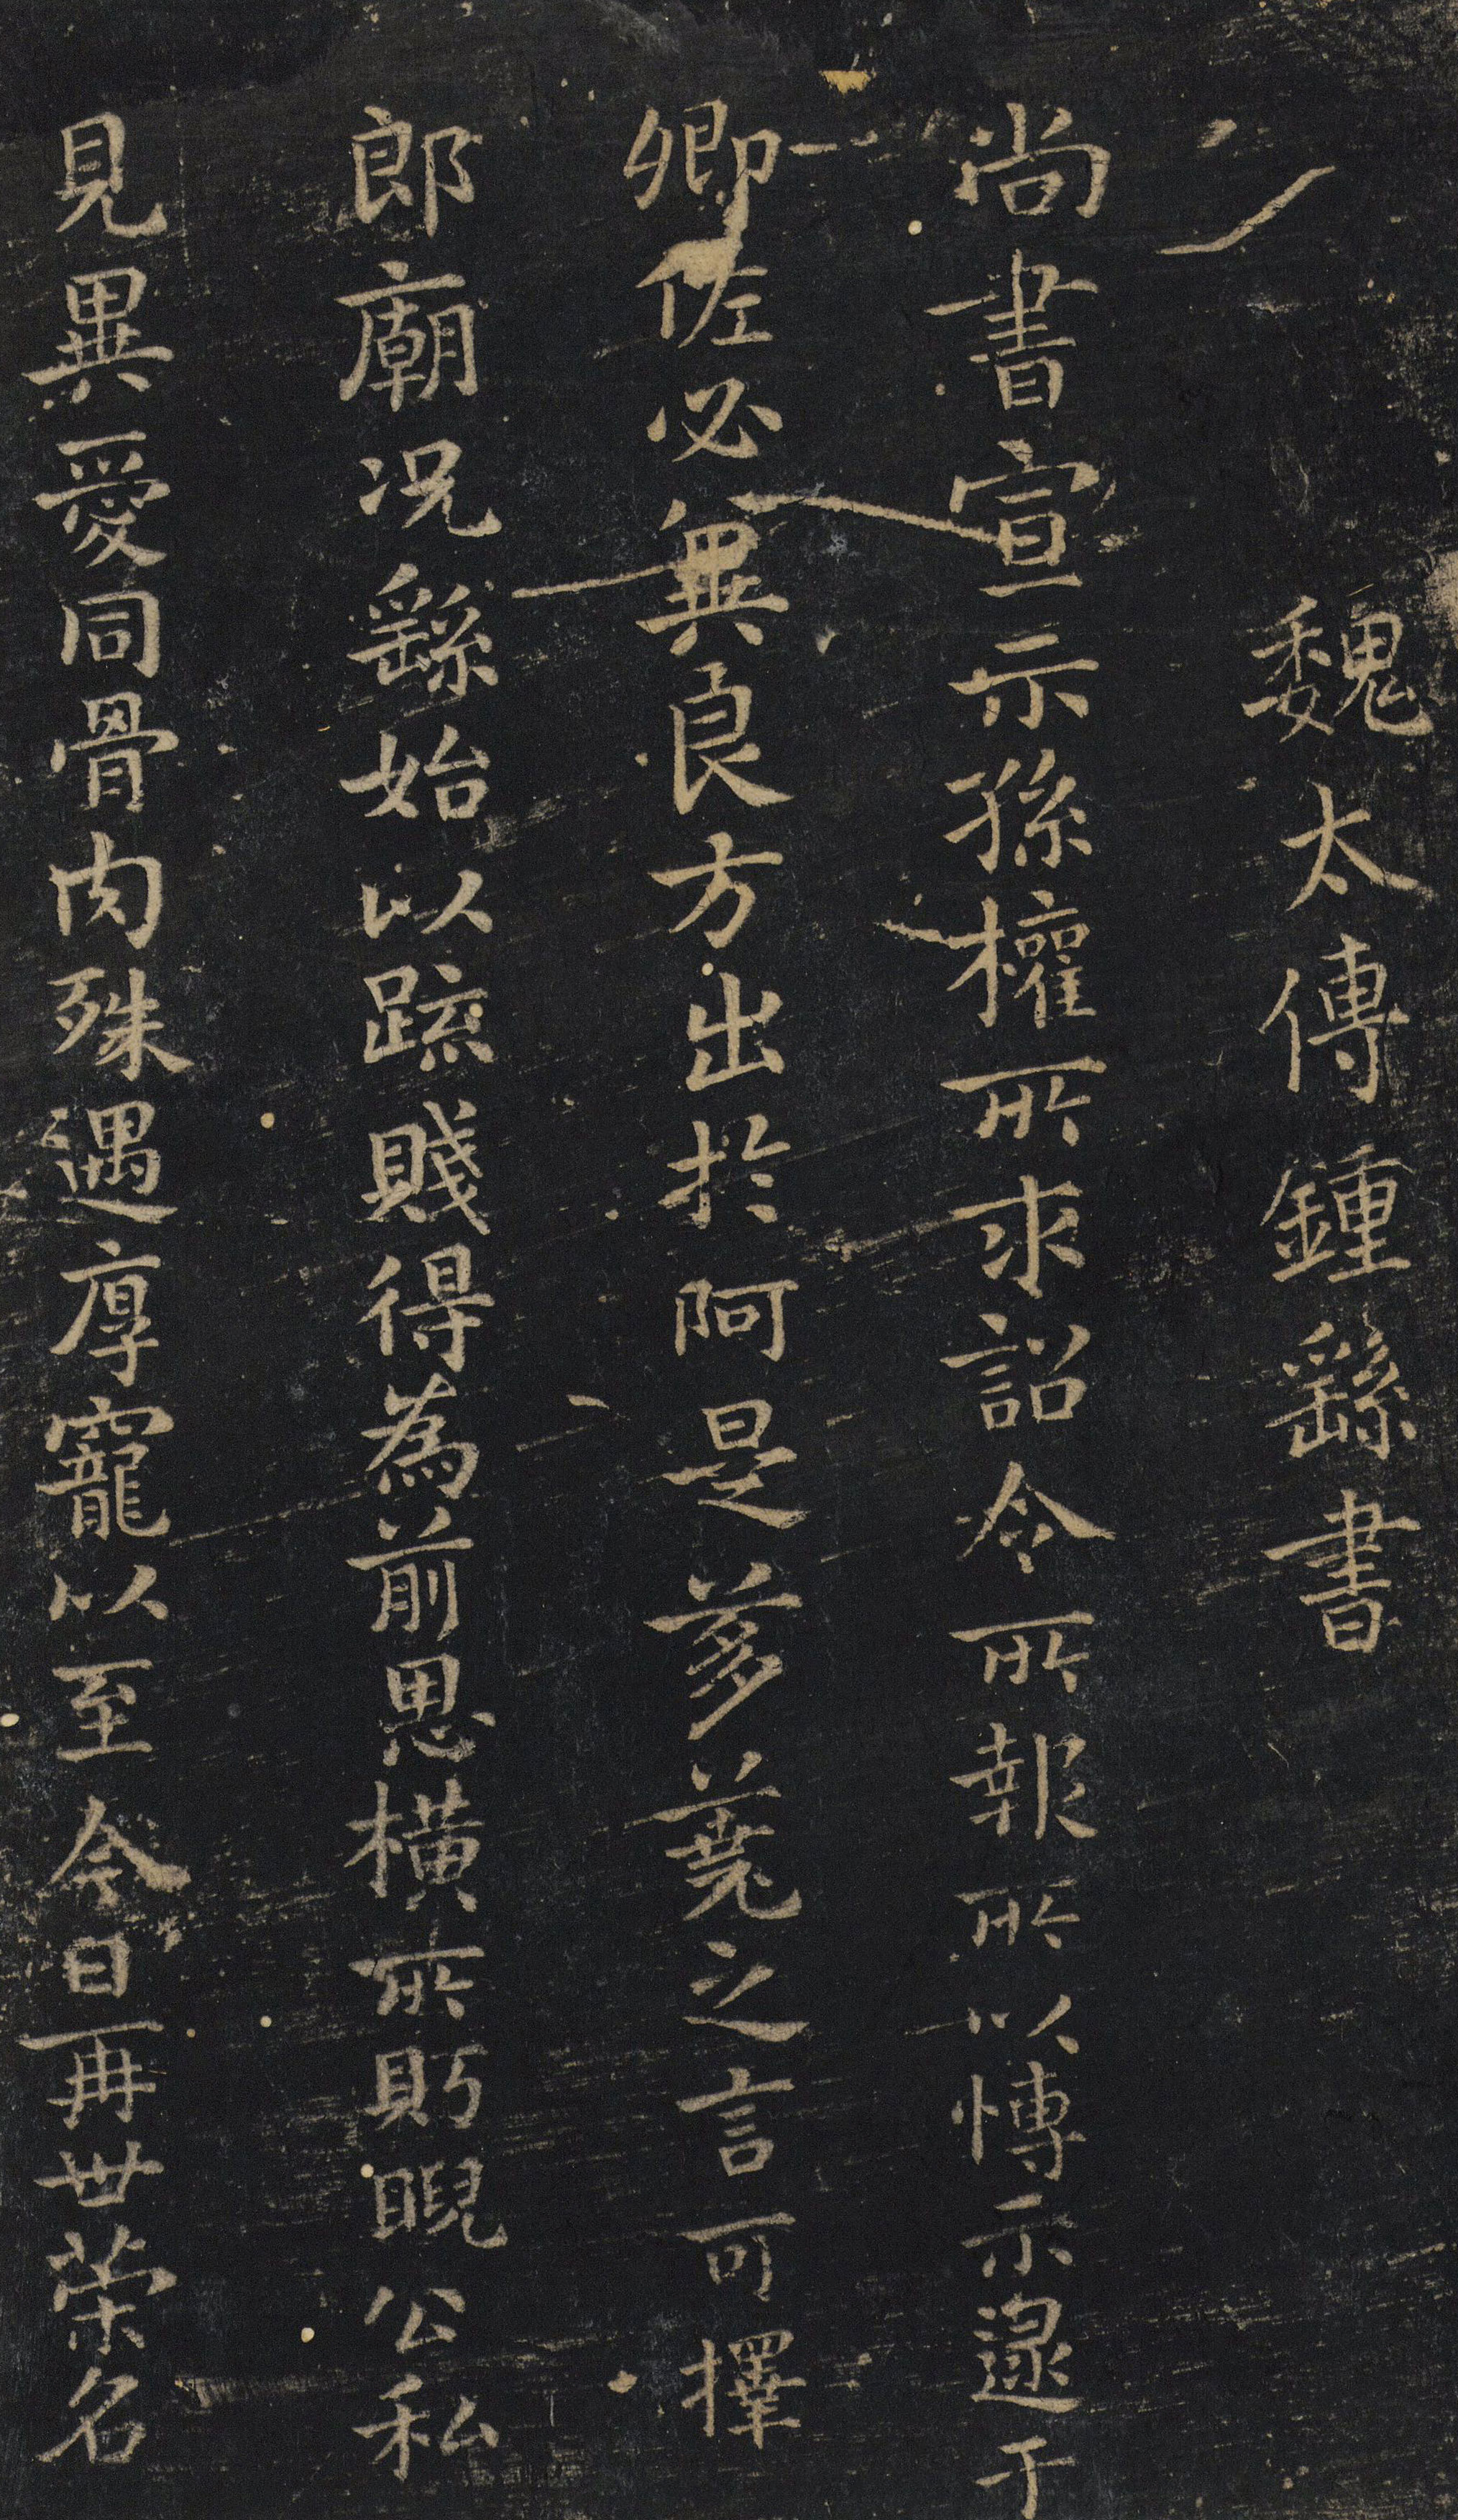 魏太傅鍾繇書
尚書宣示孫權所求詔令所報所以博示逮于
卿佐必異良方出於阿是芻蕘之言可擇
郎廟況繇始以疏賤得為前恩橫所盻睨公私
見異愛同骨肉殊遇厚寵以至今日再世榮名